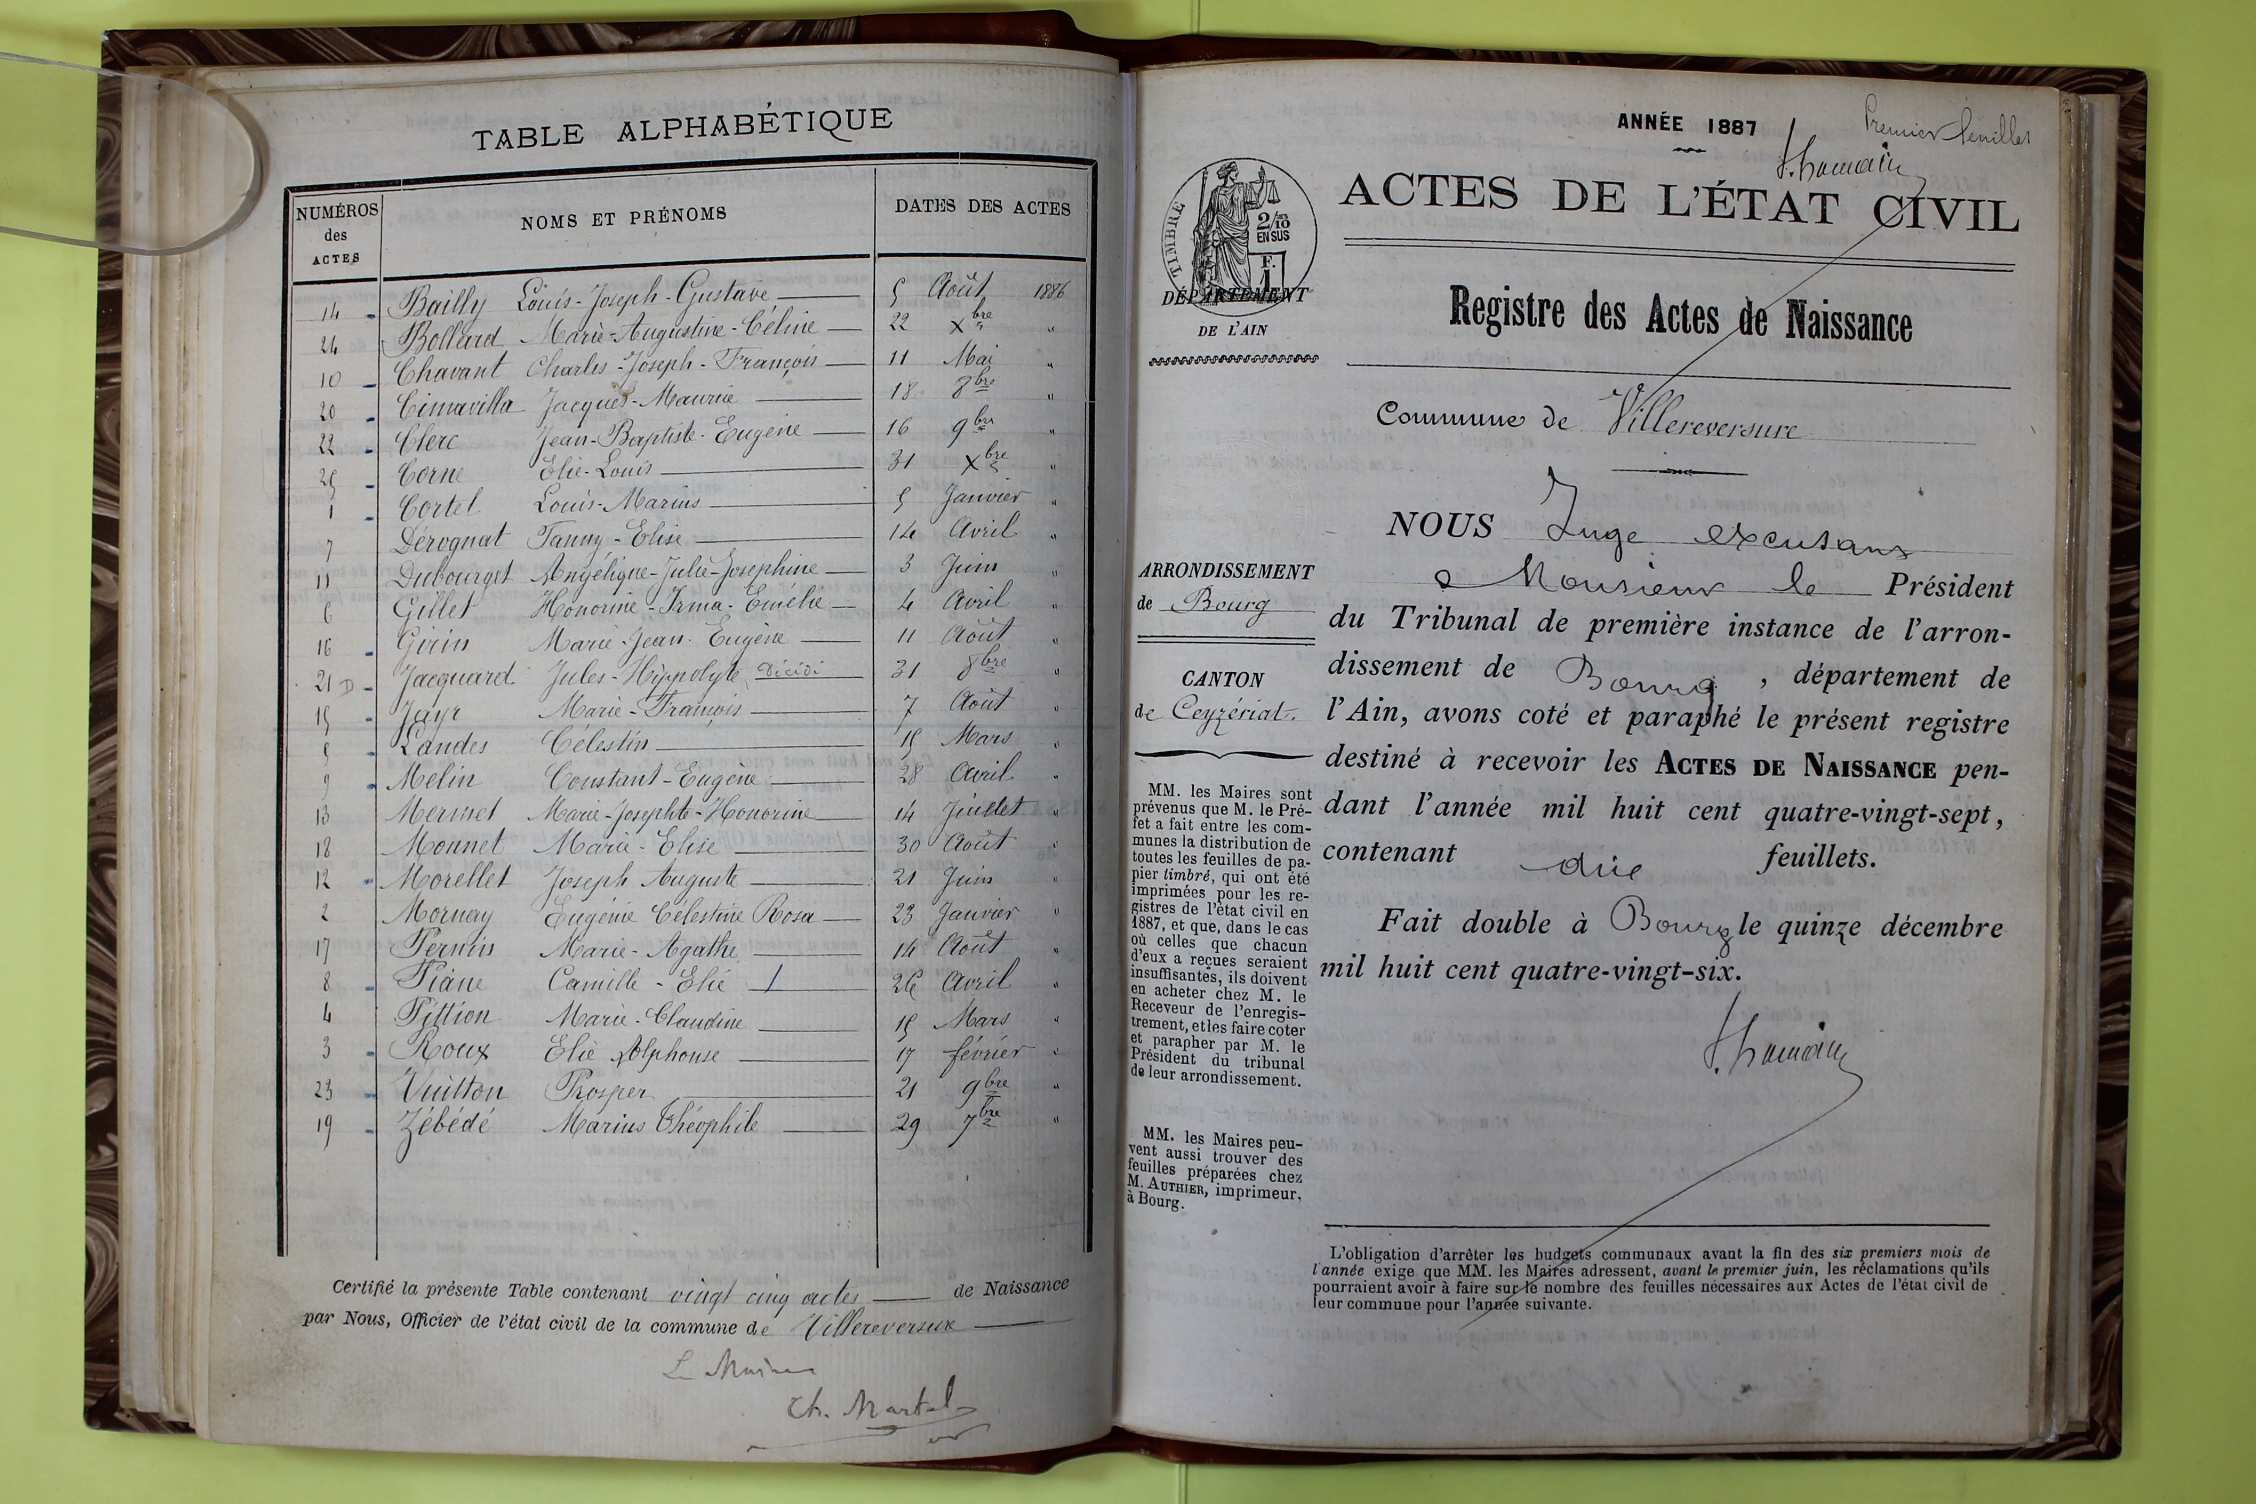 TABLE ALPHABÉTIQUE
NUMÉROS des ACTES NOMS ET PRÉNOMS DATES DES ACTES
14 Bailly Louis-Joseph-Gustave 5 Août 1886
24 Bolland Marie-Augustine-Céline 22 Xbre "
10 Chavant Charles-Joseph-François 11 Mai "
20 Cimavilla Jacques-Maurice 18 8bre "
22 Clerc Jean-Baptiste-Eugène 16 9bre "
25 Corne Elie-Louis 31 Xbre "
1 Cortel Louis-Marius 5 Janvier "
7 Dérognat Fanny-Elise 14 Avril "
11 Dubourget Angélique-Julie-Joséphine 3 Juin "
6 Gillet Honorine-Irma-Emélie 4 Avril "
16 Girin Marie-Jean-Eugène 11 Août "
21 D Jacquard Jules-Hyppolyte, Décédé 31 8bre "
15 Jayr Marie-François 7 Août "
5 Landes Célestin 15 Mars "
9 Melin Constant-Eugène 28 Avril "
13 Mermet Marie-Josephte-Honorine 14 Juillet "
18 Monnet Marie-Elise 30 Août "
12 Morellet Joseph Auguste 21 Juin "
2 Mornay Eugénie Célestine Rosa 23 Janvier "
17 Pernin Marie-Agathe 14 Août "
8 Piane Camille-Elie 26 Avril "
4 Pittion Marie-Claudine 15 Mars "
3 Roux Elie Alphonse 17 février "
23 Vuitton Prosper 21 9bre "
19 Zébédé Marius Théophile 29 7bre "
Certifié la présente Table contenant vingt cinq actes de Naissance
par Nous, Officier de l'état civil de la commune de Villereversure
Le Maire
Th. Martel
ANNÉE 1887
Premier feuillet
ACTES DE L'ÉTAT CIVIL
TIMBRE
2/10
EN SUS
F.
1
DÉPARTEMENT
DE L'AIN
Registre des Actes de Naissance
Commune de Villereversure
ARRONDISSEMENT
de Bourg
CANTON
de Ceyzériat.
MM. les Maires sont
prévenus que M. le Pré-
fet a fait entre les com-
munes la distribution de
toutes les feuilles de pa-
pier timbré, qui ont été
imprimées pour les re-
gistres de l'état civil en
1887, et que, dans le cas
où celles que chacun
d'eux a reçues seraient
insuffisantes, ils doivent
en acheter chez M. le
Receveur de l'enregis-
trement, et les faire coter
et parapher par M. le
Président du tribunal
de leur arrondissement.
MM. les Maires peu-
vent aussi trouver des
feuilles préparées chez
M. AUTHIER, imprimeur,
à Bourg.
NOUS Juge excusant
Monsieur le Président
du Tribunal de première instance de l'arron-
dissement de Bourg, département de
l'Ain, avons coté et paraphé le présent registre
destiné à recevoir les ACTES DE NAISSANCE pen-
dant l'année mil huit cent quatre-vingt-sept,
contenant dix feuillets.
Fait double à Bourg le quinze décembre
mil huit cent quatre-vingt-six.
L'obligation d'arrêter les budgets communaux avant la fin des six premiers mois de
l'année exige que MM. les Maires adressent, avant le premier juin, les réclamations qu'ils
pourraient avoir à faire sur le nombre des feuilles nécessaires aux Actes de l'état civil de
leur commune pour l'année suivante.